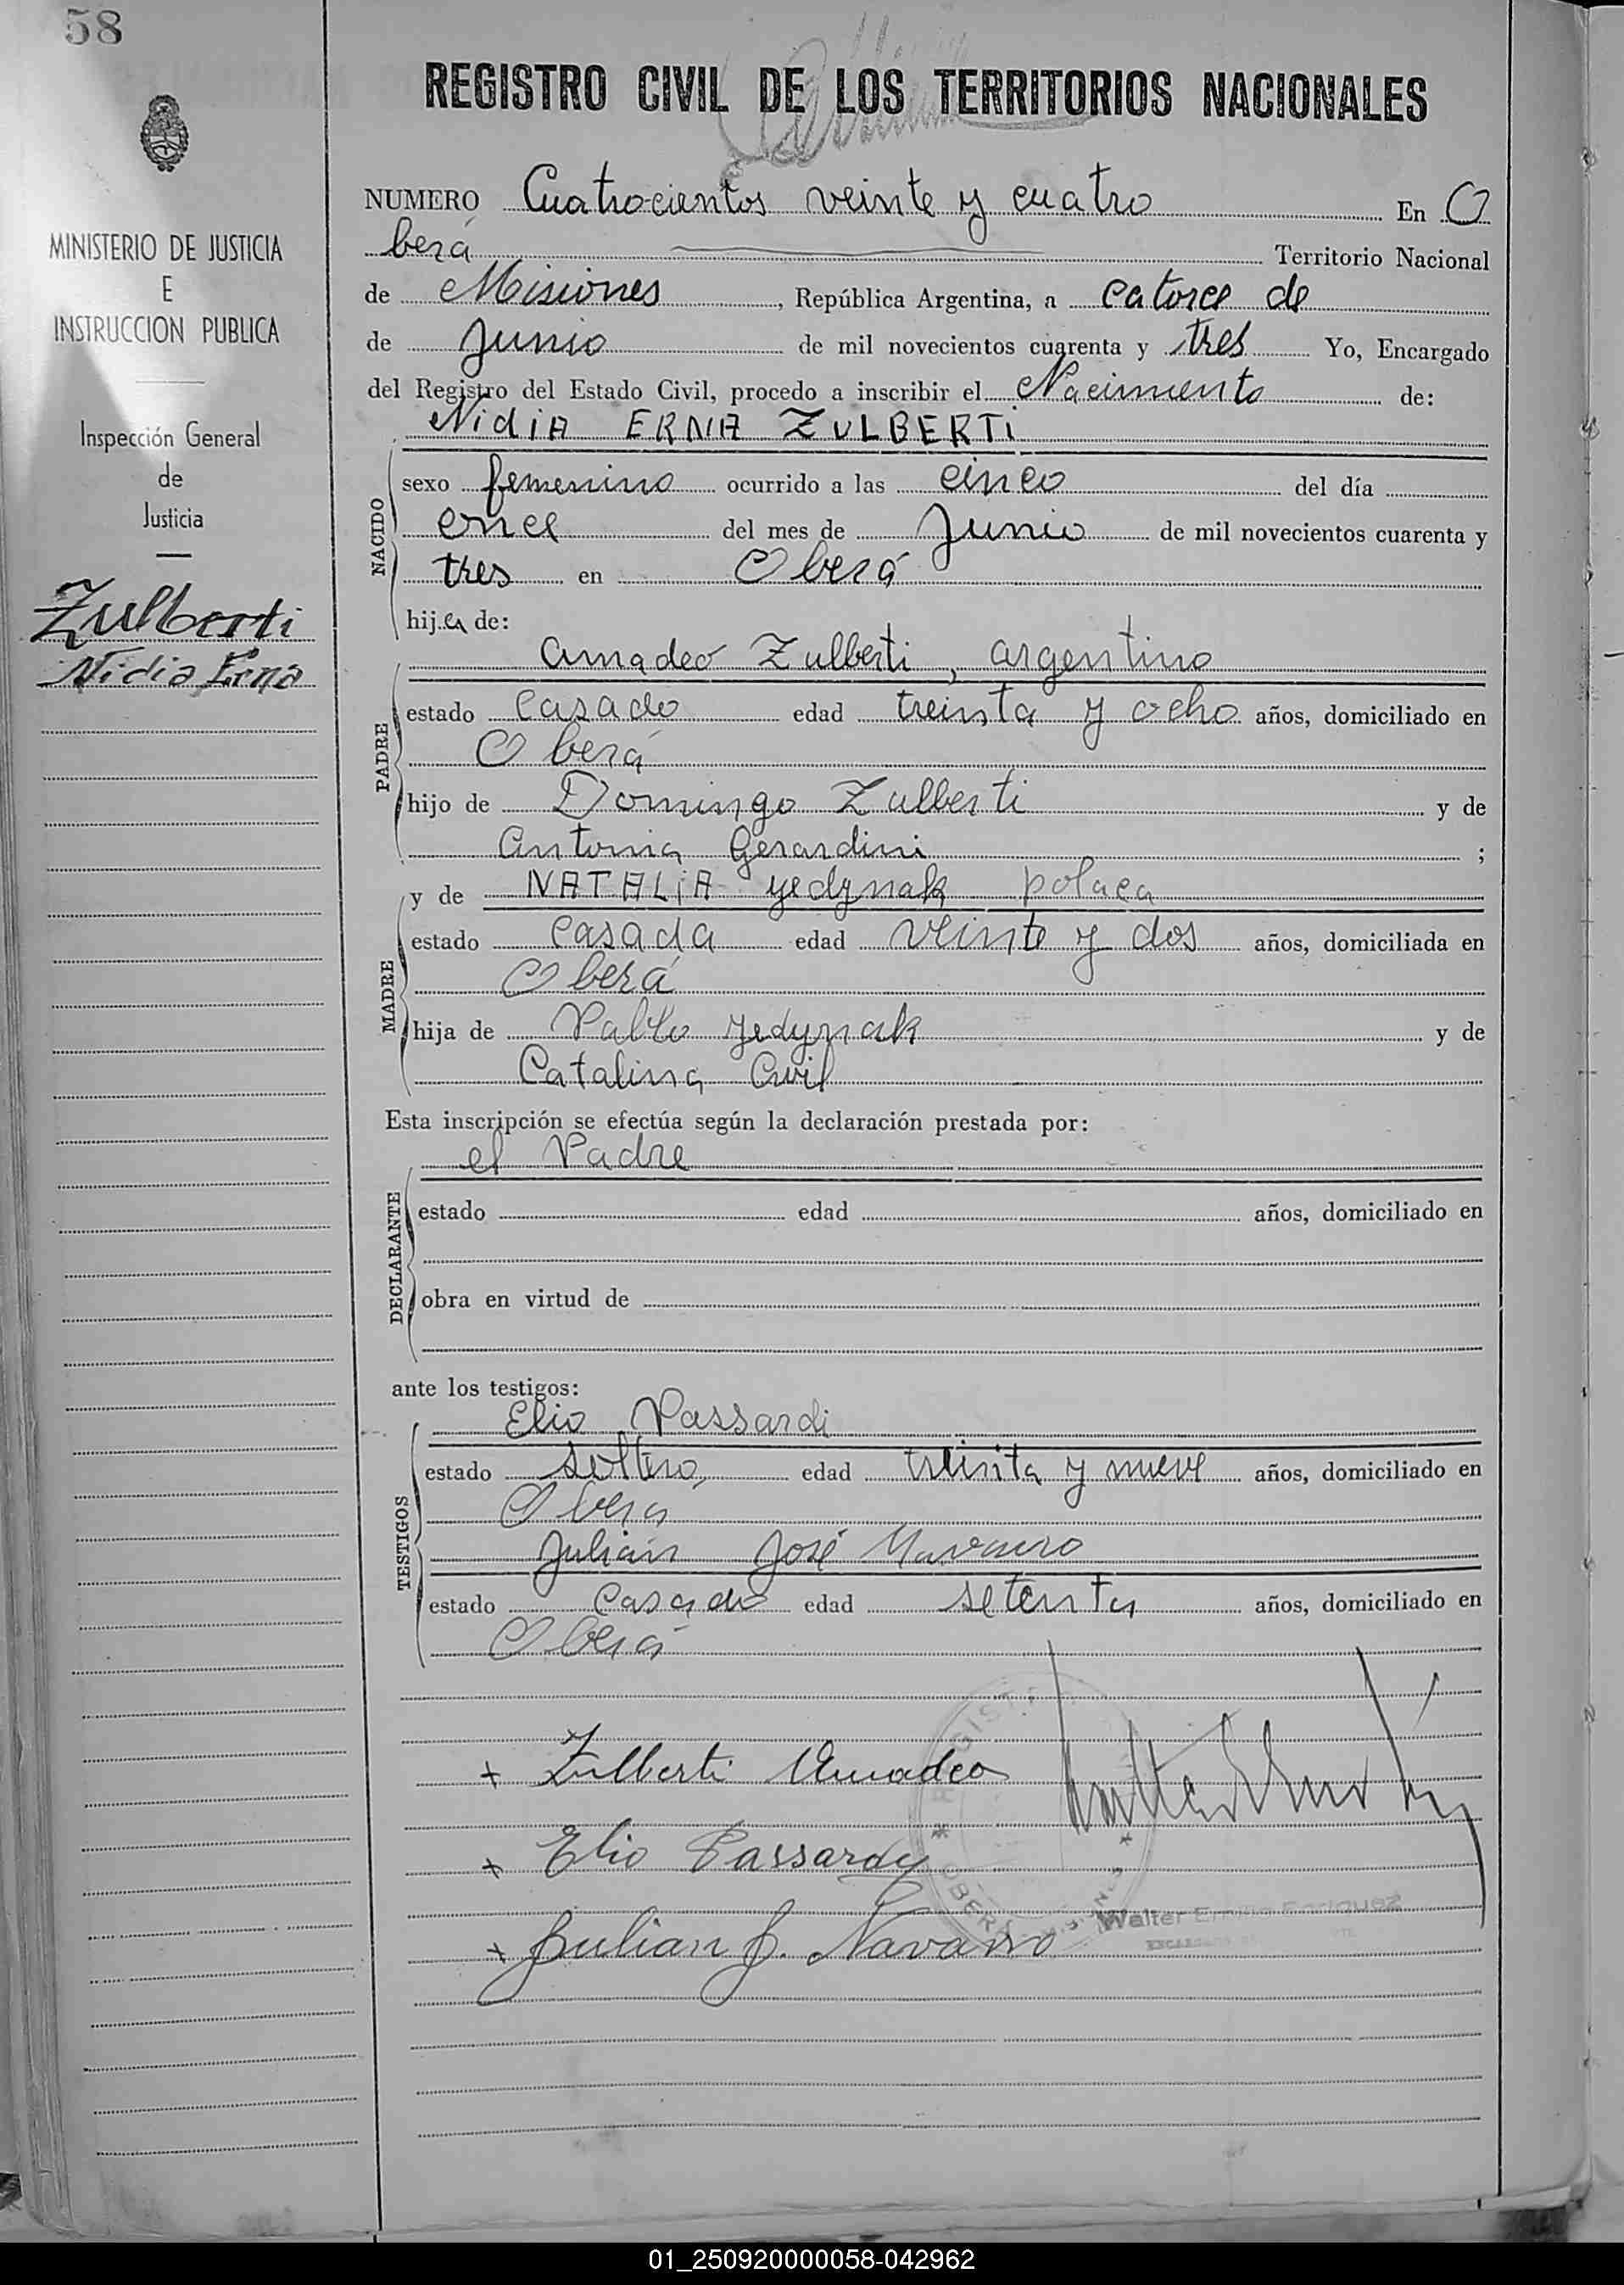 58
REGISTRO CIVIL DE LOS TERRITORIOS NACIONALES
MINISTERIO DE JUSTICIA
E
INSTRUCCION PUBLICA
Inspección General
de
Justicia
Zulberti
Nidia Erna
NUMERO Cuatrocientos veinte y cuatro En O
berá Territorio Nacional
de Misiones, República Argentina, a catorce de
de Junio de mil novecientos cuarenta y tres Yo, Encargado
del Registro del Estado Civil, procedo a inscribir el Nacimiento de:
NidiA ERNA ZULBERTi
NACIDO
sexo femenino ocurrido a las cinco del día
once del mes de Junio de mil novecientos cuarenta y
tres en Oberá
hija de:
PADRE
Amadeo Zulberti, argentino
estado casado edad treinta y ocho años, domiciliado en
Oberá
hijo de Domingo Zulberti y de
Antonia Gerardini ;
MADRE
y de NATALiA yedynak polaca
estado casada edad veinte y dos años, domiciliada en
Oberá
hija de Pablo yedynak y de
Catalina
Esta inscripción se efectúa según la declaración prestada por:
el Padre
DECLARANTE
estado edad años, domiciliado en
obra en virtud de
ante los testigos:
TESTIGOS
Elio Passardi
estado soltero, edad treinta y nueve años, domiciliado en
Oberá
Julián José Navarro
estado Casado edad setenta años, domiciliado en
Oberá
+ Zulberti Amadeo
+ Elio Passardy
+ Julian J. Navarro
OBERA
Walter Emilio Enriquez
01_250920000058-042962